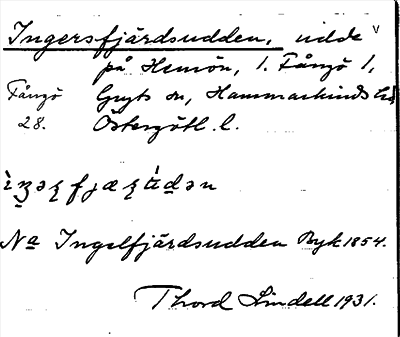 Ingersfjärdsudden, udde
på Hemön, l. Fångö 1,
Fångö Gryts sn, Hammarkinds hd
28. Östergötl. l.
Na Ingelfjärdsudden Ryk 1854.
Thord Lindell 1931.